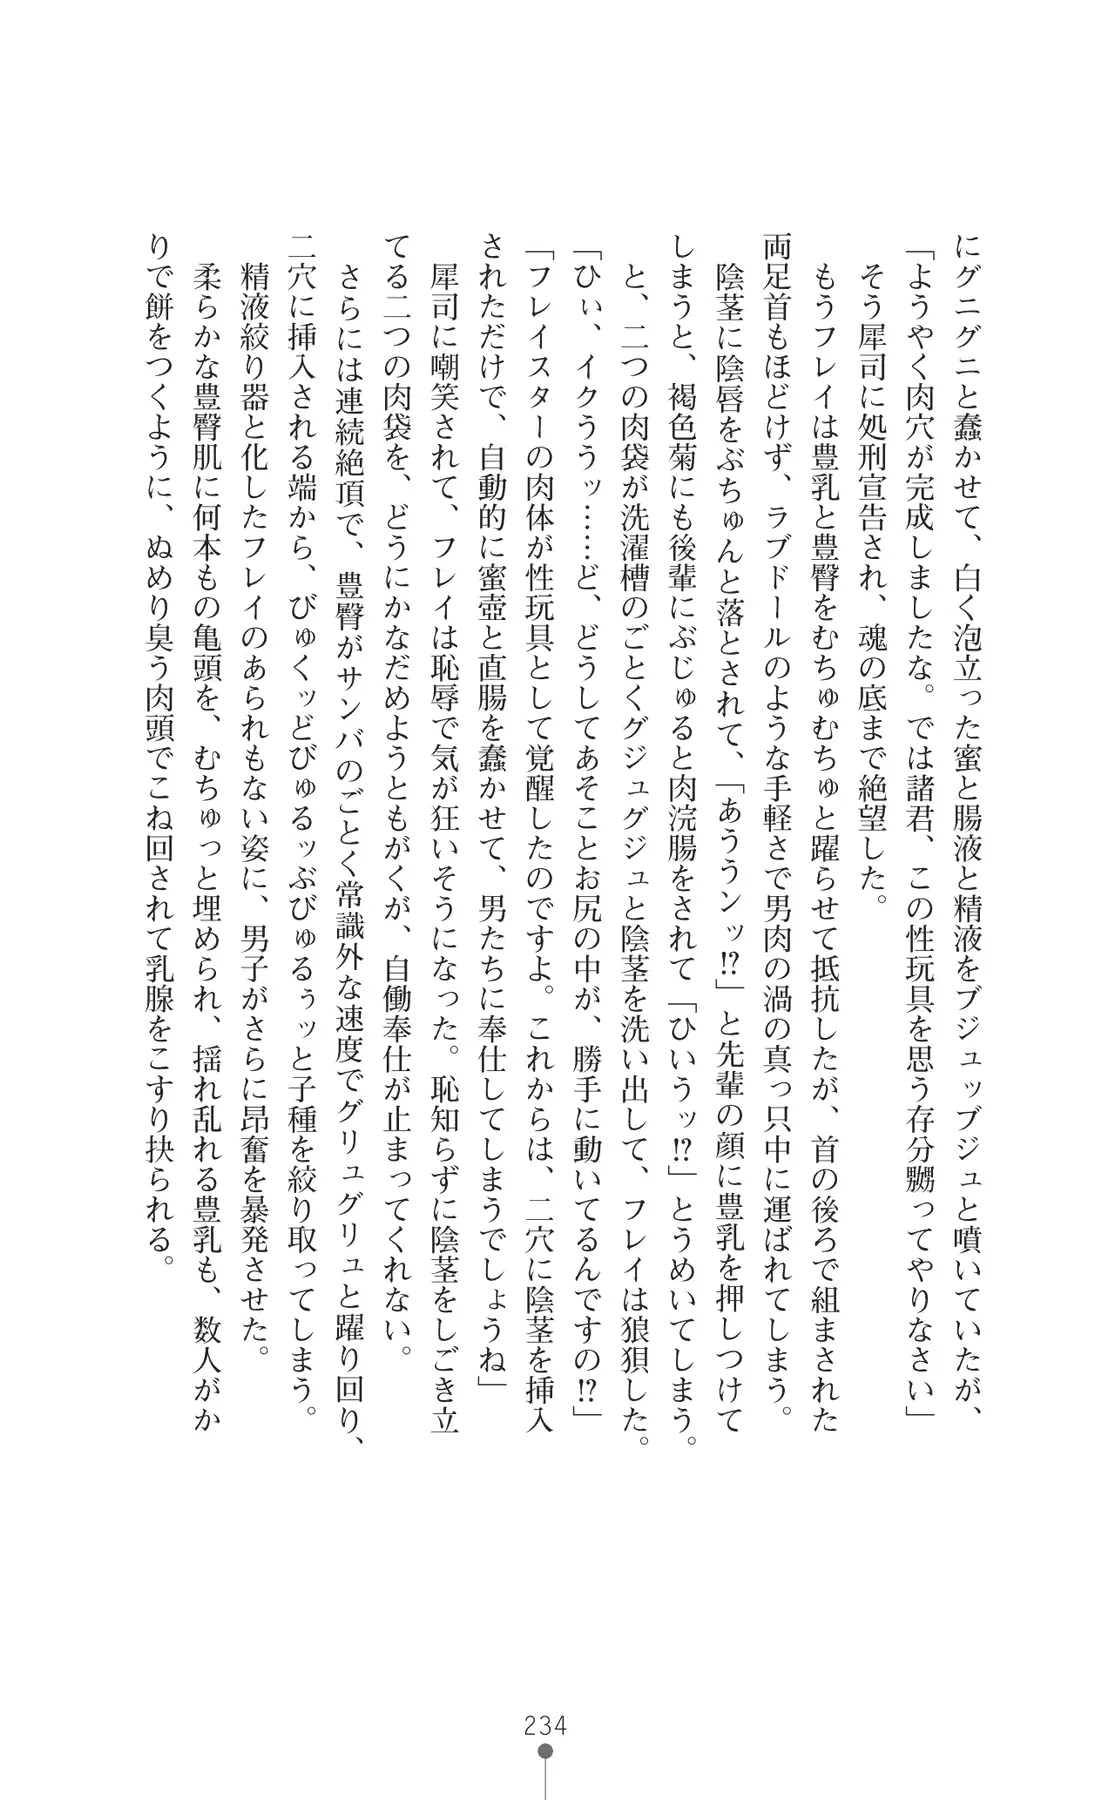 にグニグニと蠢かせて、白く泡立った蜜と腸液と精液をブジュッブジュと噴いていたが、
「ようやく肉穴が完成しましたな。では諸君、この性玩具を思う存分嬲ってやりなさい」
そう犀司に処刑宣告され、魂の底まで絶望した。
もうフレイは豊乳と豊臀をむちゅむちゅと躍らせて抵抗したが、首の後ろで組まされた
両足首もほどけず、ラブドールのような手軽さで男肉の渦の真っ只中に運ばれてしまう。
陰茎に陰唇をぶちゅんと落とされて、「あううンッ!?」と先輩の顔に豊乳を押しつけて
しまうと、褐色菊にも後輩にぶじゅると肉浣腸をされて「ひいうッ!?」とうめいてしまう。
と、二つの肉袋が洗濯槽のごとくグジュグジュと陰茎を洗い出して、フレイは狼狽した。
「ひぃ、イクううッ……ど、どうしてあそことお尻の中が、勝手に動いてるんですの!?」
「フレイスターの肉体が性玩具として覚醒したのですよ。これからは、二穴に陰茎を挿入
されただけで、自動的に蜜壺と直腸を蠢かせて、男たちに奉仕してしまうでしょうね」
犀司に嘲笑されて、フレイは恥辱で気が狂いそうになった。恥知らずに陰茎をしごき立
てる二つの肉袋を、どうにかなだめようともがくが、自働奉仕が止まってくれない。
さらには連続絶頂で、豊臀がサンバのごとく常識外な速度でグリュグリュと躍り回り、
二穴に挿入される端から、びゅくッどびゅるッぶびゅるぅッと子種を絞り取ってしまう。
精液絞り器と化したフレイのあられもない姿に、男子がさらに昂奮を暴発させた。
柔らかな豊臀肌に何本もの亀頭を、むちゅっと埋められ、揺れ乱れる豊乳も、数人がか
りで餅をつくように、ぬめり臭う肉頭でこね回されて乳腺をこすり抉られる。
234